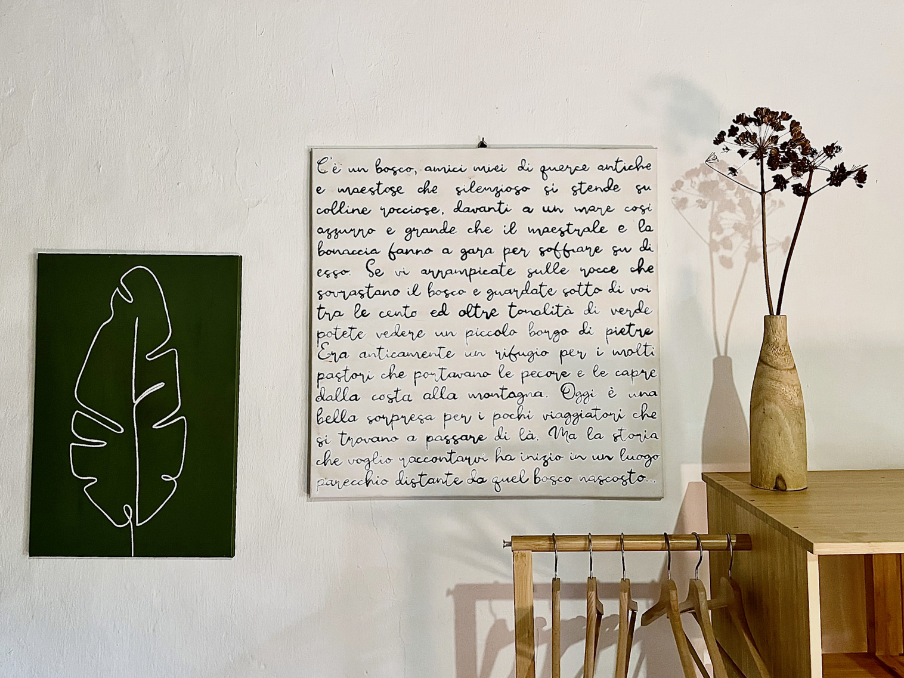 C'è un bosco, amici miei di querce antiche
e maestose che silenzioso si stende su
colline rocciose, davanti a un mare così
azzurro e grande che il maestrale e la
bonaccia fanno a gara per soffiare su di
esso. Se vi arrampicate sulle rocce che
sovrastano il bosco e guardate sotto di voi
tra le cento ed oltre tonalità di verde
potete vedere un piccolo borgo di pietre
Era anticamente un rifugio per i molti
pastori che portavano le pecore e le capre
dalla costa alla montagna. Oggi è una
bella sorpresa per i pochi viaggiatori che
si trovano a passare di là. Ma la storia
che voglio raccontarvi ha inizio in un luogo
parecchio distante da quel bosco nascosto...